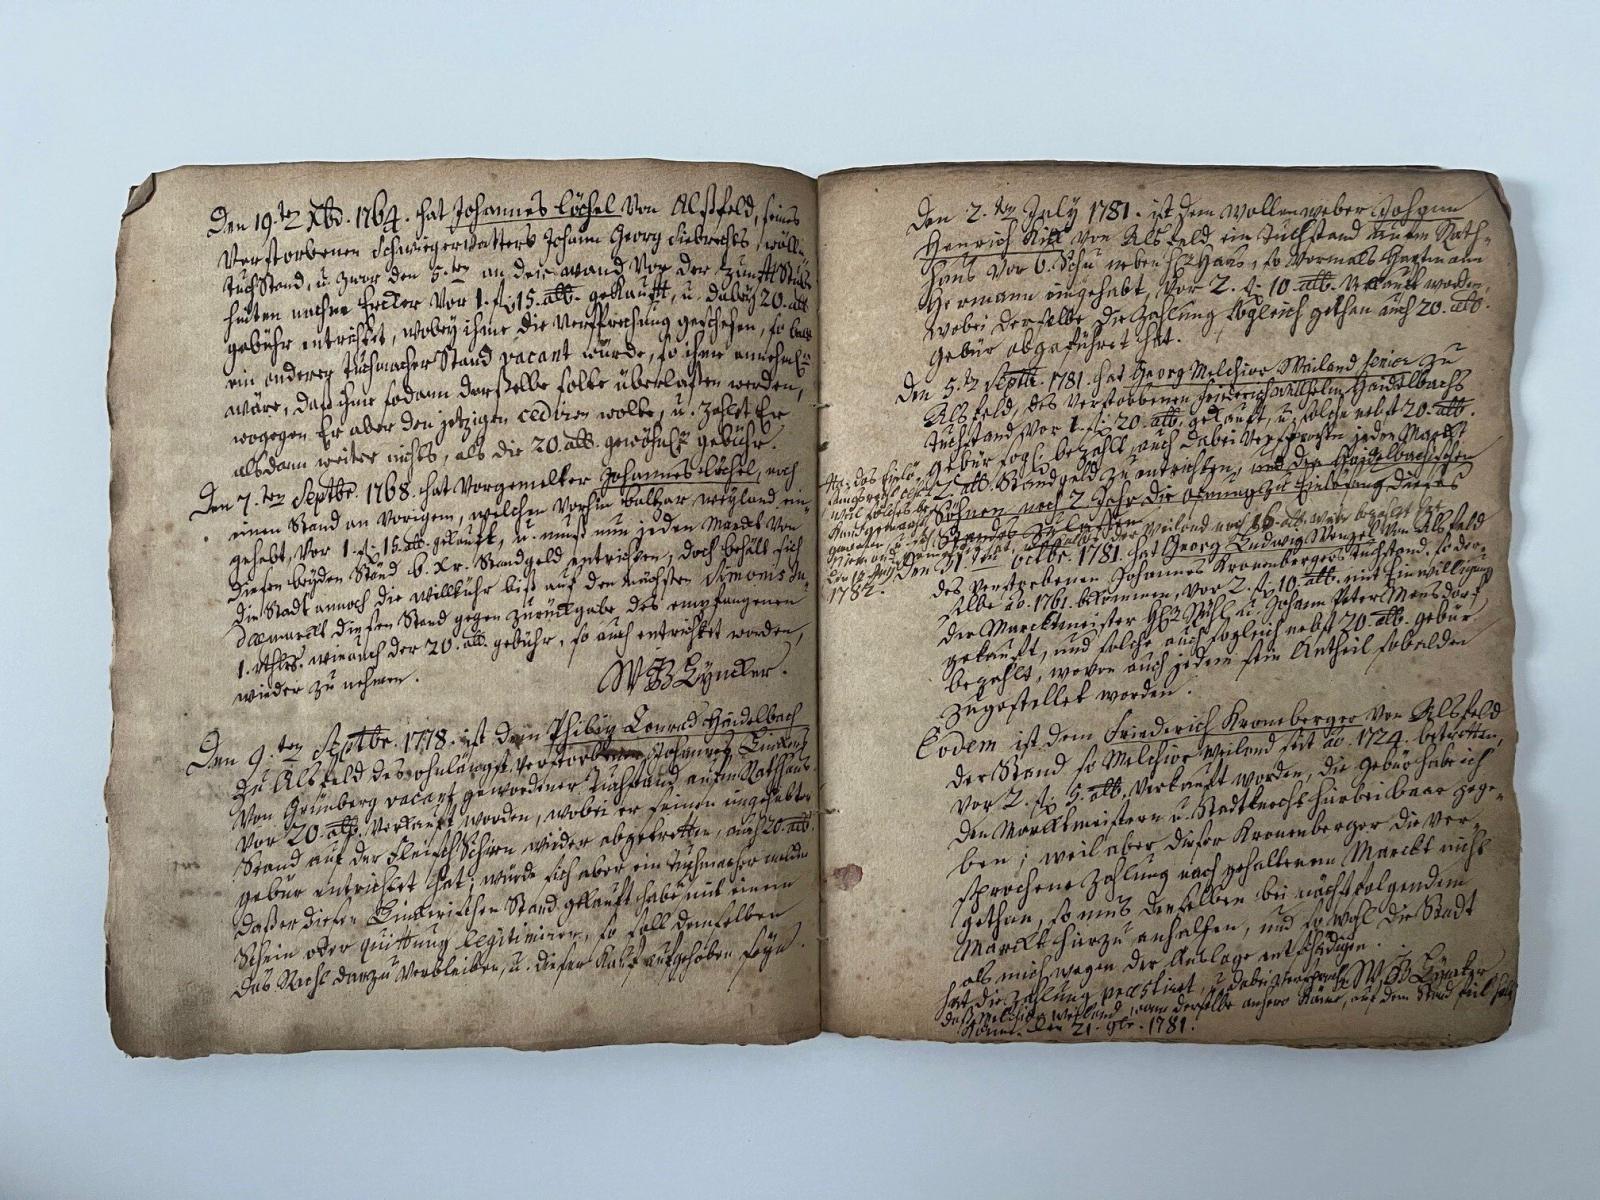 Den 19.ten Xbr. 1764. hat Johannes Löchel von Alßfeld, seines
verstorbenen Schwiegervatters Johann Georg Siebrechts wüll.
Tuch Stand, u. zwar den 5.ten an der wand von der Zunfft Stub
hinten nach Ercker vor 1. fl. 15. alb. gekaufft, u. dabey 20. alb
gebühr entrichtet, wobey ihme die Versprechung geschehen, so bald
ein anderer Tuchmacher Stand vacant würde, so ihme annehmlich
wäre, daß ihme sodann derselbe solte überlaßen werden,
wogegen Er aber den jetzigen cediren wolle, u. zahlet Er
alsdann weiter nichts, als die 20. alb. gewöhnl. gebühr.
Den 7.ten Septbr. 1768. hat Vorgemelter Johannes Löchel, noch
einen Stand an Vorigem, welchen vorhin Baltzar Weyland ein-
gehabt, vor 1. fl. 15. alb. gekaufft, u. muß nun jeden Marckt von
diesen beyden Ständ 6. Xr. Standgeld entrichten, doch behält sich
die Stadt annoch die willkühr biß auf den nächsten Simonis Ju-
daemarckt diesen Stand gegen zurückgabe des empfangenen
1. rthlr. wie auch der 20. alb. gebühr, so auch entrichtet worden,
wieder zu nehmen.
W B Lyncker.
Den 9.ten Septbr. 1778. ist dem Philipp Conrad Haidelbach
zu Alsfeld des ohnlängst verstorbenen Johannes
von Grünberg vacant gewordener Tuchstand aufm Rathhaus
vor 20. alb. verkauft worden, wobei er seinen ingehabten
Stand auf der Fleisch Schirn wieder abgetretten, auch 20. alb.
gebür entrichtet hat; würde sich aber ein Tuchmacher melden
daß er diesen Stand gekauft habe mit einem
Schein oder quittung legitimiren, so soll demselben
das Recht darzu verbleiben, u. dieser Kauf aufgehoben seyn.
Den 2.ten July 1781. ist dem Wollenweber Johann
Henrich von Alsfeld ein Tuchstand aufm Rath-
haus vor 6. Schu neben H. Haas, so vormals Hartmann
Hermann eingehabt, vor 2. fl. 10. alb. verkauft worden,
wobei derselbe die Zahlung sogleich gethan auch 20. alb.
gebür abgeführet hat.
Den 5.ten Septbr. 1781. hat Georg Melchior Weiland senior zu
Alsfeld, des verstorbenen Friederich Wilhelm Haidelbachs
Tuchstand vor 1. fl. 20. alb. gekauft, u. solche nebst 20. alb.
Gebür sogl. bezahlt, auch dabei versprochen jeden Marckt
2. alb. Standgeld zu entrichten, und den Haidelbachischen
Söhnen noch 2 Jahr die ofnung zu Einlösung dieses
Standes zulaßen
1782.
Den 31.ten octbr. 1781. hat Georg Ludwig Wenzel von Alsfeld
des verstorbenen Johannes Kronenbergers Tuchstand, so der-
selbe ao. 1761. bekommen, vor 2. fl. 10. alb. mit Einwilligung
der Marcktmeister H. Rühl u. Johann Peter Mansdorf
gekauft, und solche auch sogleich nebst 20. alb. gebür
bezahlt, wovon auch jedem sein Antheil sobalden
zugestellet worden.
Eodem ist dem Friederich Kroneberger von Alsfeld
der Stand so Melchior Weiland seit ao. 1724. betretten,
vor 2. fl. 5. alb. verkauft worden, die Gebür habe ich
den Marcktmeistern u. Stadtknecht hierbei baar gege-
ben; weil aber dieser Kronenberger die ver-
sprochene Zahlung nach gehaltenem Marckt nicht
gethan, so mus denselben bei nächstfolgendem
Marckt hierzu anhalten, und so wohl die Stadt
als mich wegen der Auslage entschädigen.
W B Lyncker
hat die Zahlung praestirt, u. dabei versprochen
daß Melchior Weiland, wann derselbe anhero käme, auf dem Stand feil halten
könne. Den 21. 9br. 1781.